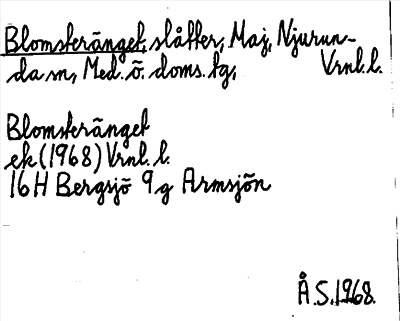 Blomsteränget, slåtter, Maj, Njurun-
da sn, Med. ö. doms. tg, Vrnl. l.
Blomsteränget
ek (1968) Vrnl. l.
16 H Bergsjö 9 g Armsjön
Å.S. 1968.